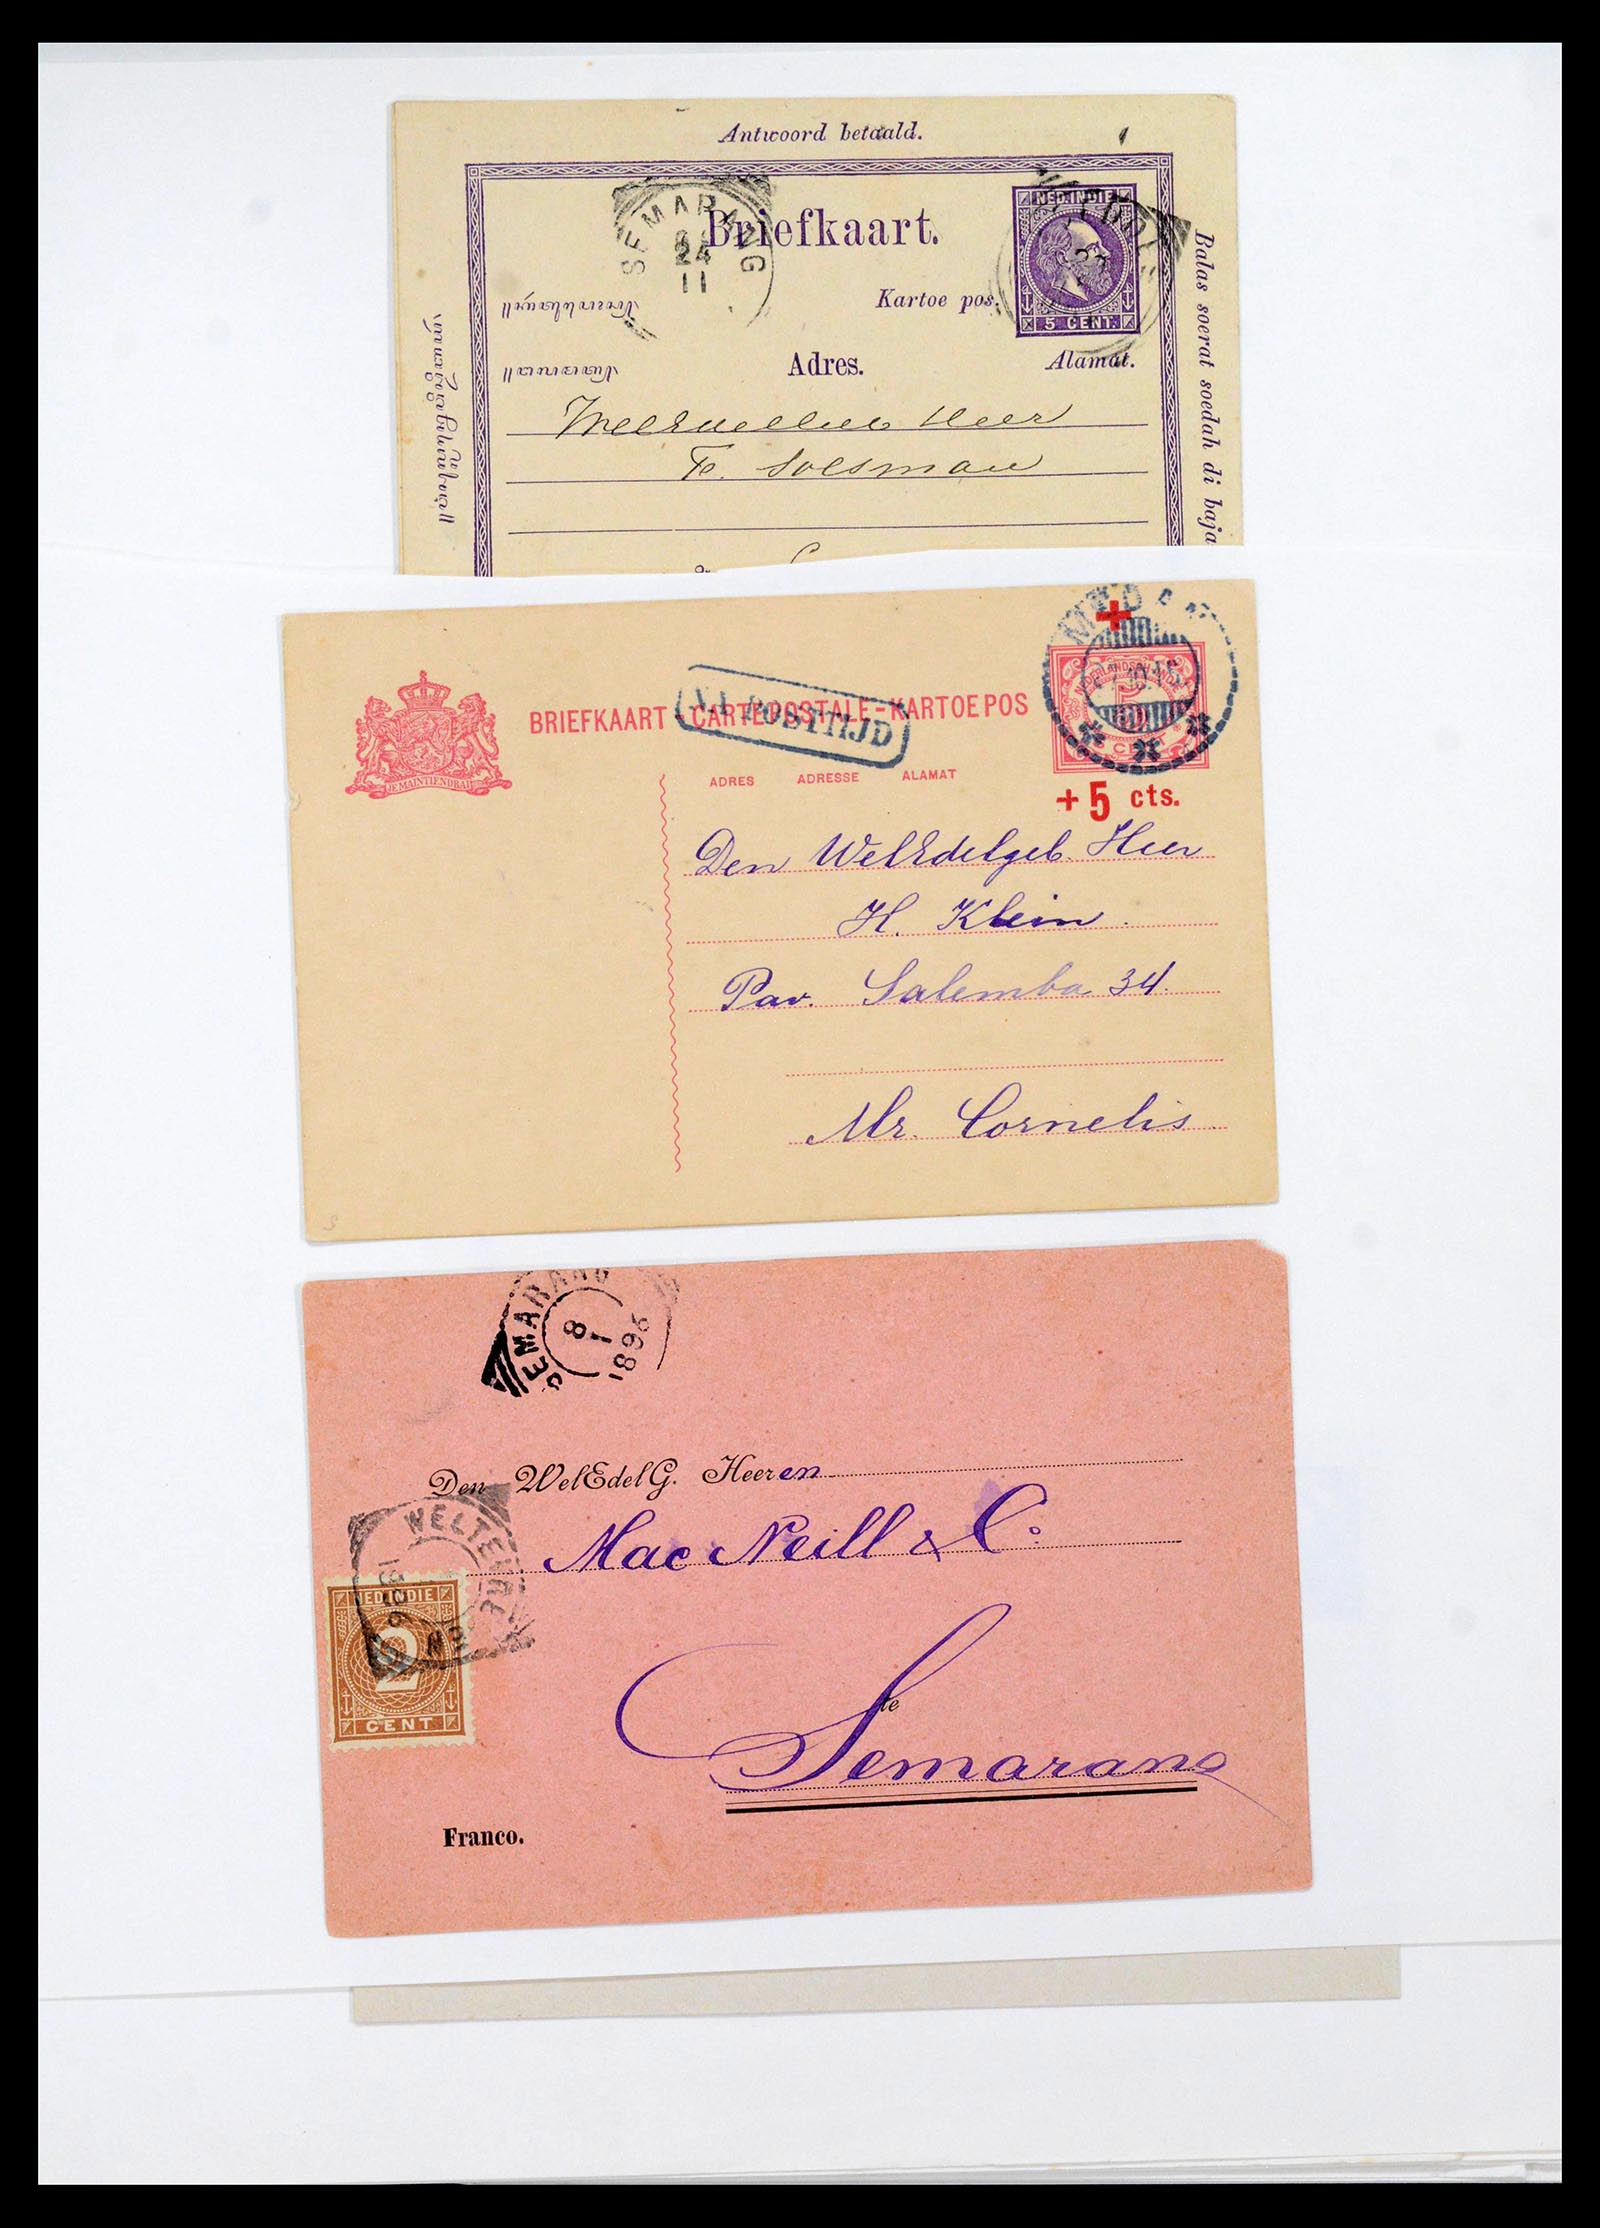 Antwoord betaald.
SEMARANG
24
11
Briefkaart.
NED. INDIE
5 CENT.
Kartoe pos.
Adres.
Alamat.
Balas soerat soedah di baja
Heer
F. Soesman
MEDAN
BRIEFKAART - CARTE POSTALE - KARTOE POS
NA POSTTIJD
JE MAINTIENDRAI
NEDERLANDSCH-INDIE
5
CENT
ADRES ADRESSE ALAMAT
+ 5 cts.
Den WelEdelgeb. Heer
H. Klein.
Pav. Salemba 34.
Mr. Cornelis.
SEMARANG
8
1
1896
Den WelEdelG. Heeren
WELTEVREDEN
Mac Neill & Co:
NED. INDIE
2
CENT
te
Semarang
Franco.